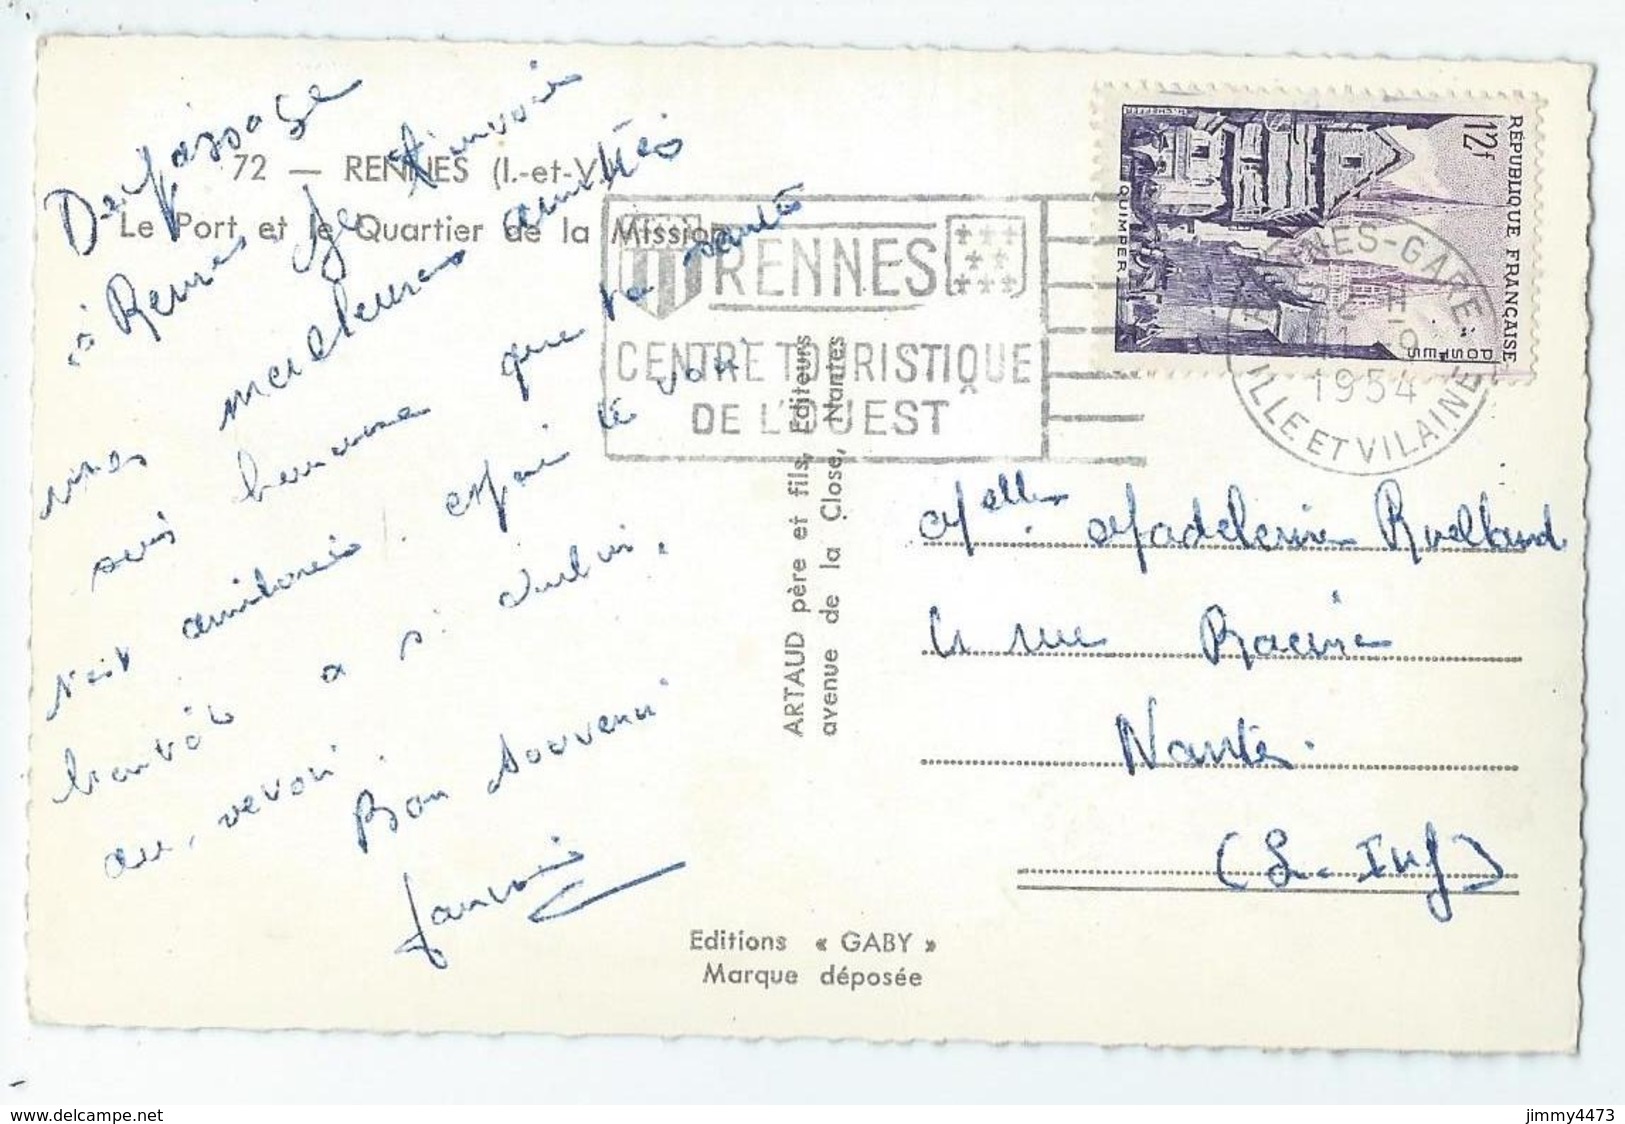 72 — RENNES (I.-et-V.)
Le Port et le Quartier de la Mission
De passage
à Rennes. Je t'envoie
mes meilleures amitiés
suis heureuse que ta santé
s'est améliorée. espère te voir
bientôt à St Aubin.
au revoir.
Bon souvenir
RENNES
CENTRE TOURISTIQUE
DE L'OUEST
RÉPUBLIQUE FRANÇAISE
12f
POSTES
QUIMPER
RENNES-GARE
1954
ILLE ET VILAINE
ARTAUD père et fils, Editeurs
avenue de la Close, Nantes
Melle Madeleine Ruelland
4 rue Racine
Nantes.
(L-Inf)
Editions « GABY »
Marque déposée
www.delcampe.net
jimmy4473